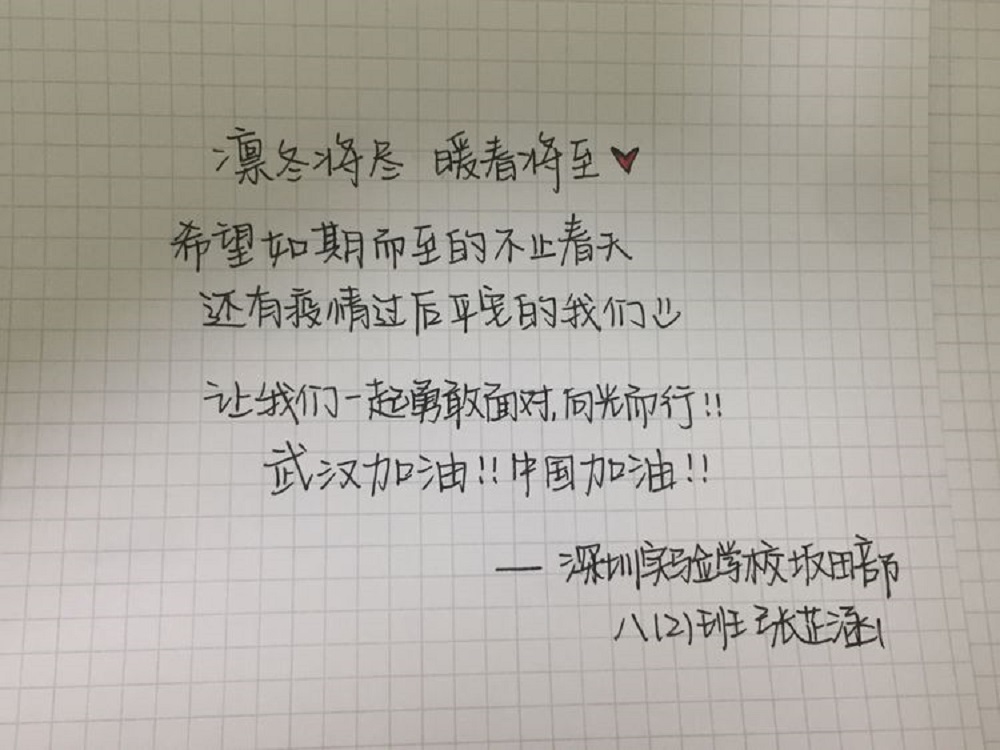 凛冬将尽 暖春将至♥
希望如期而至的不止春天
还有疫情过后平安的我们
让我们一起勇敢面对,向光而行!!
武汉加油!!中国加油!!
— 深圳实验学校坂田部
八(2)班 张芷涵